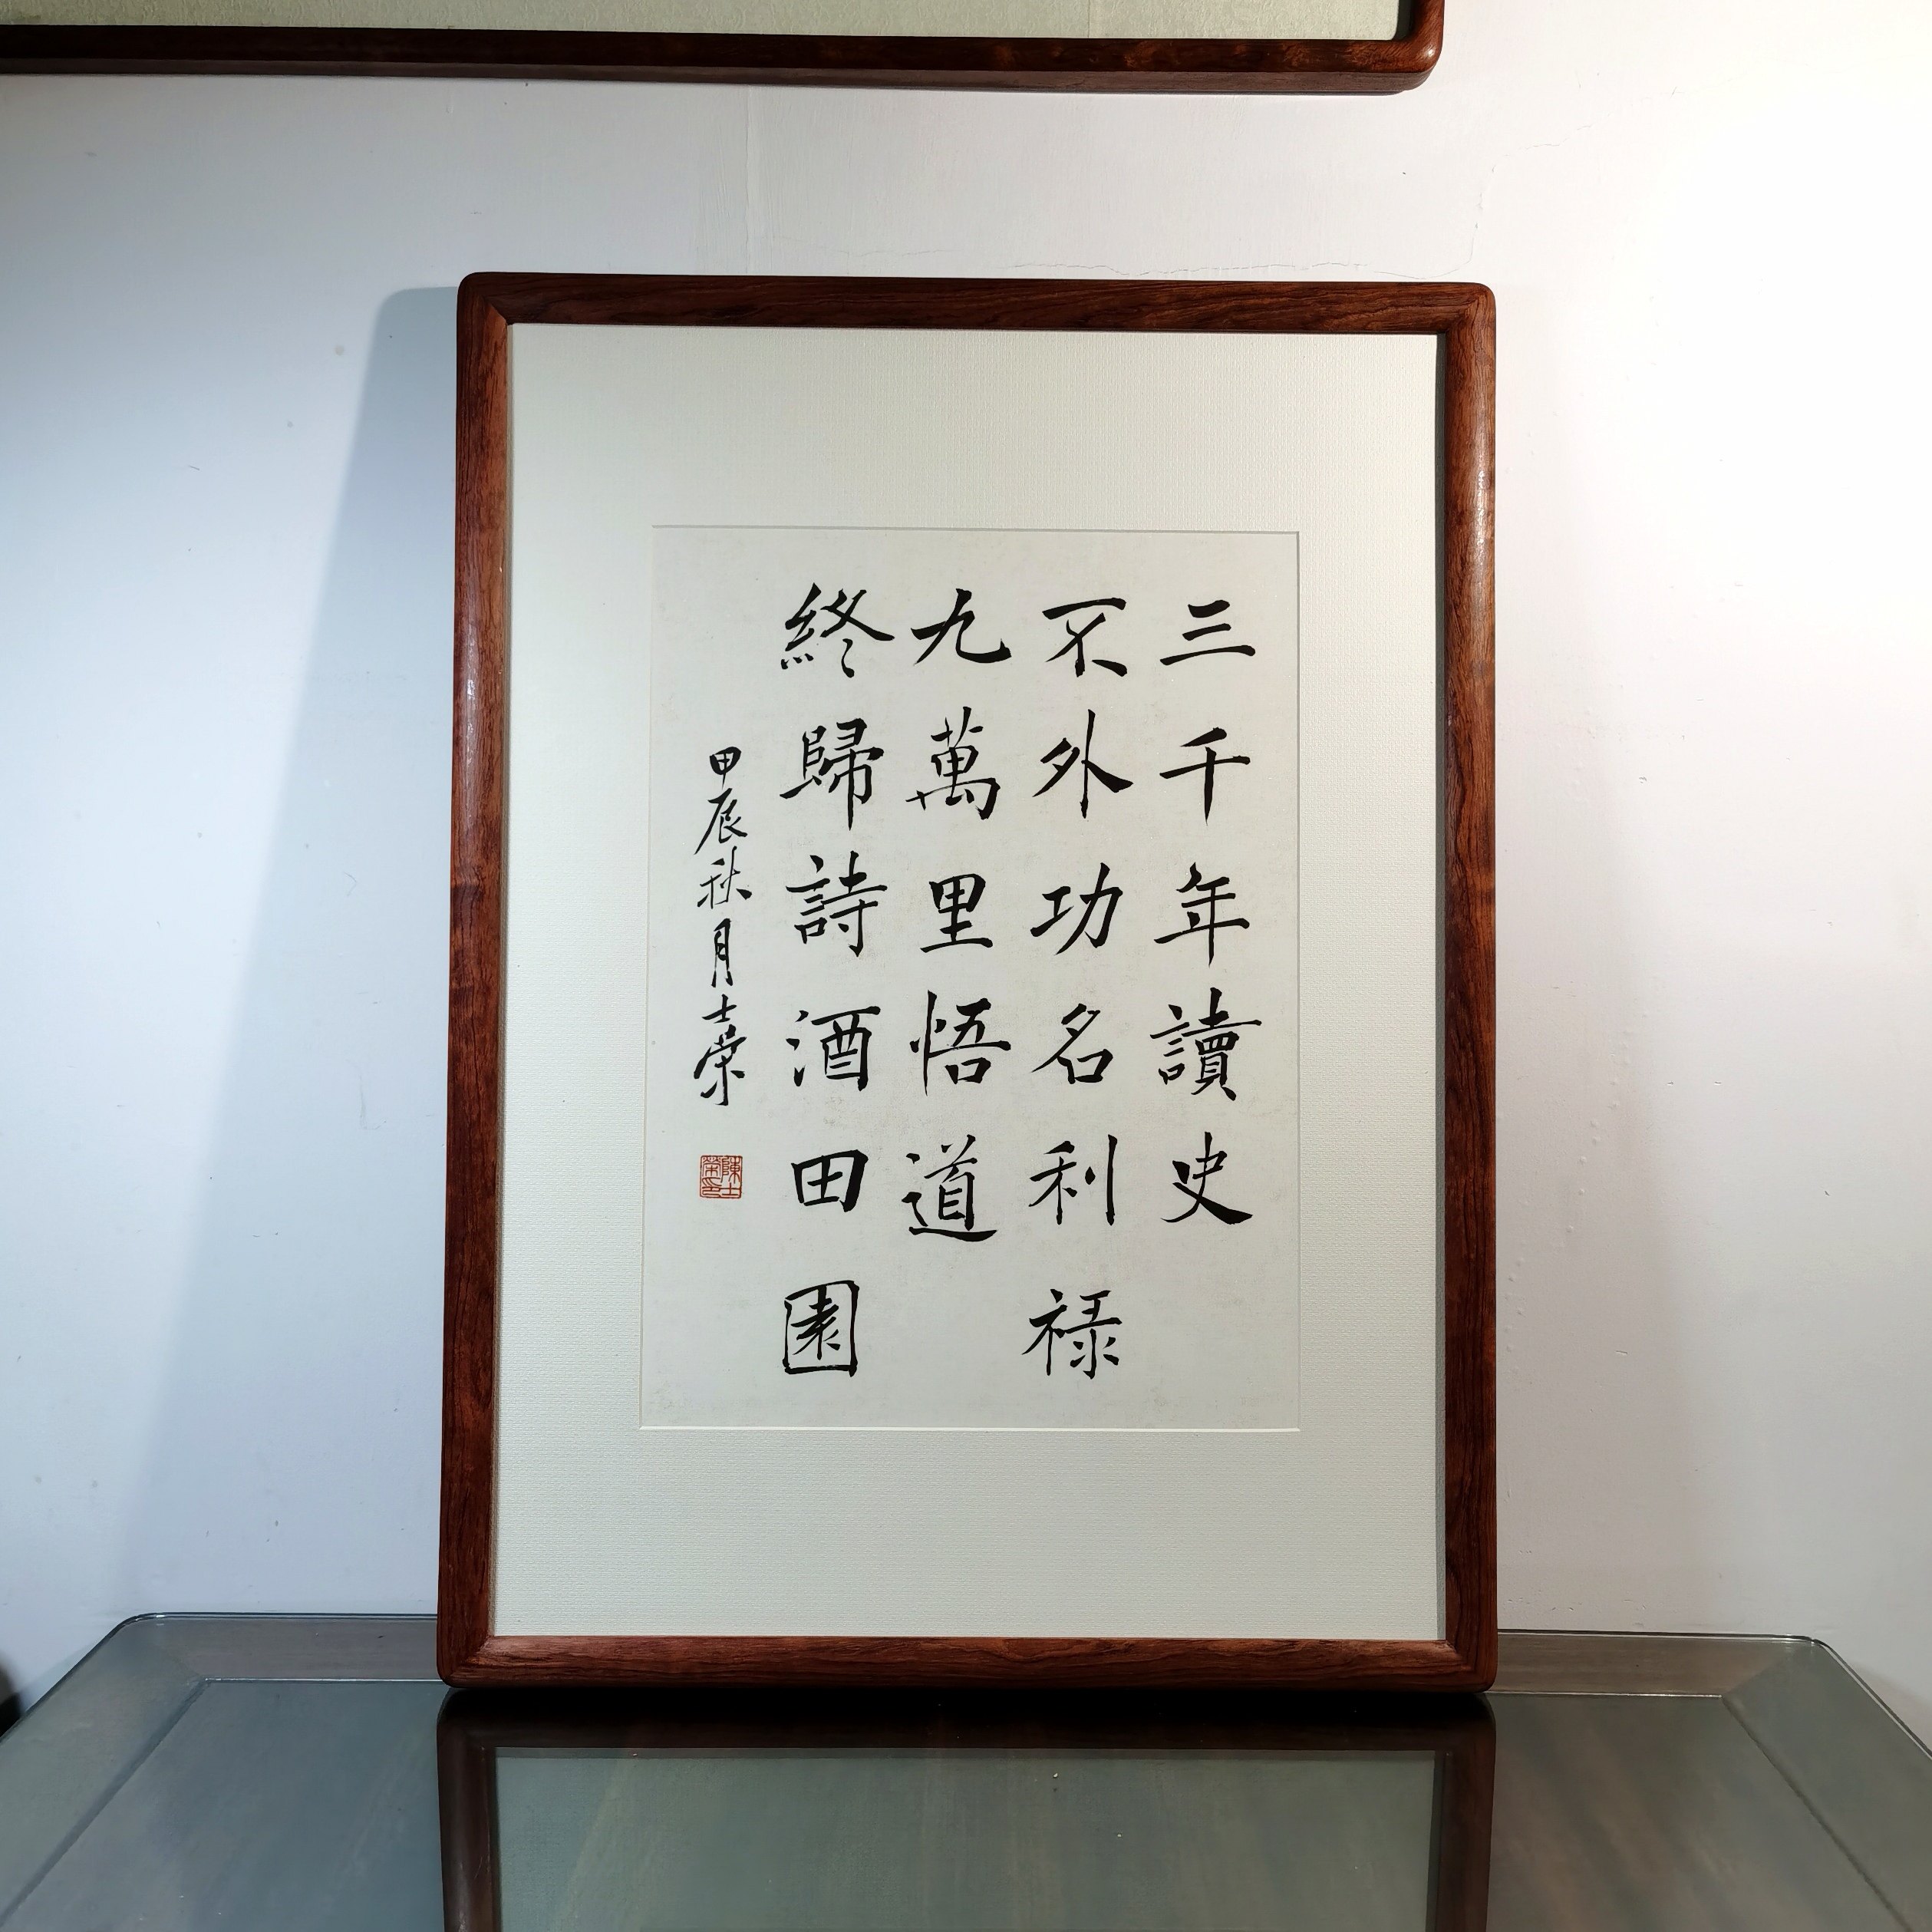 三千年讀史
不外功名利祿
九萬里悟道
終歸詩酒田園
甲辰秋月士榮
陳士榮印